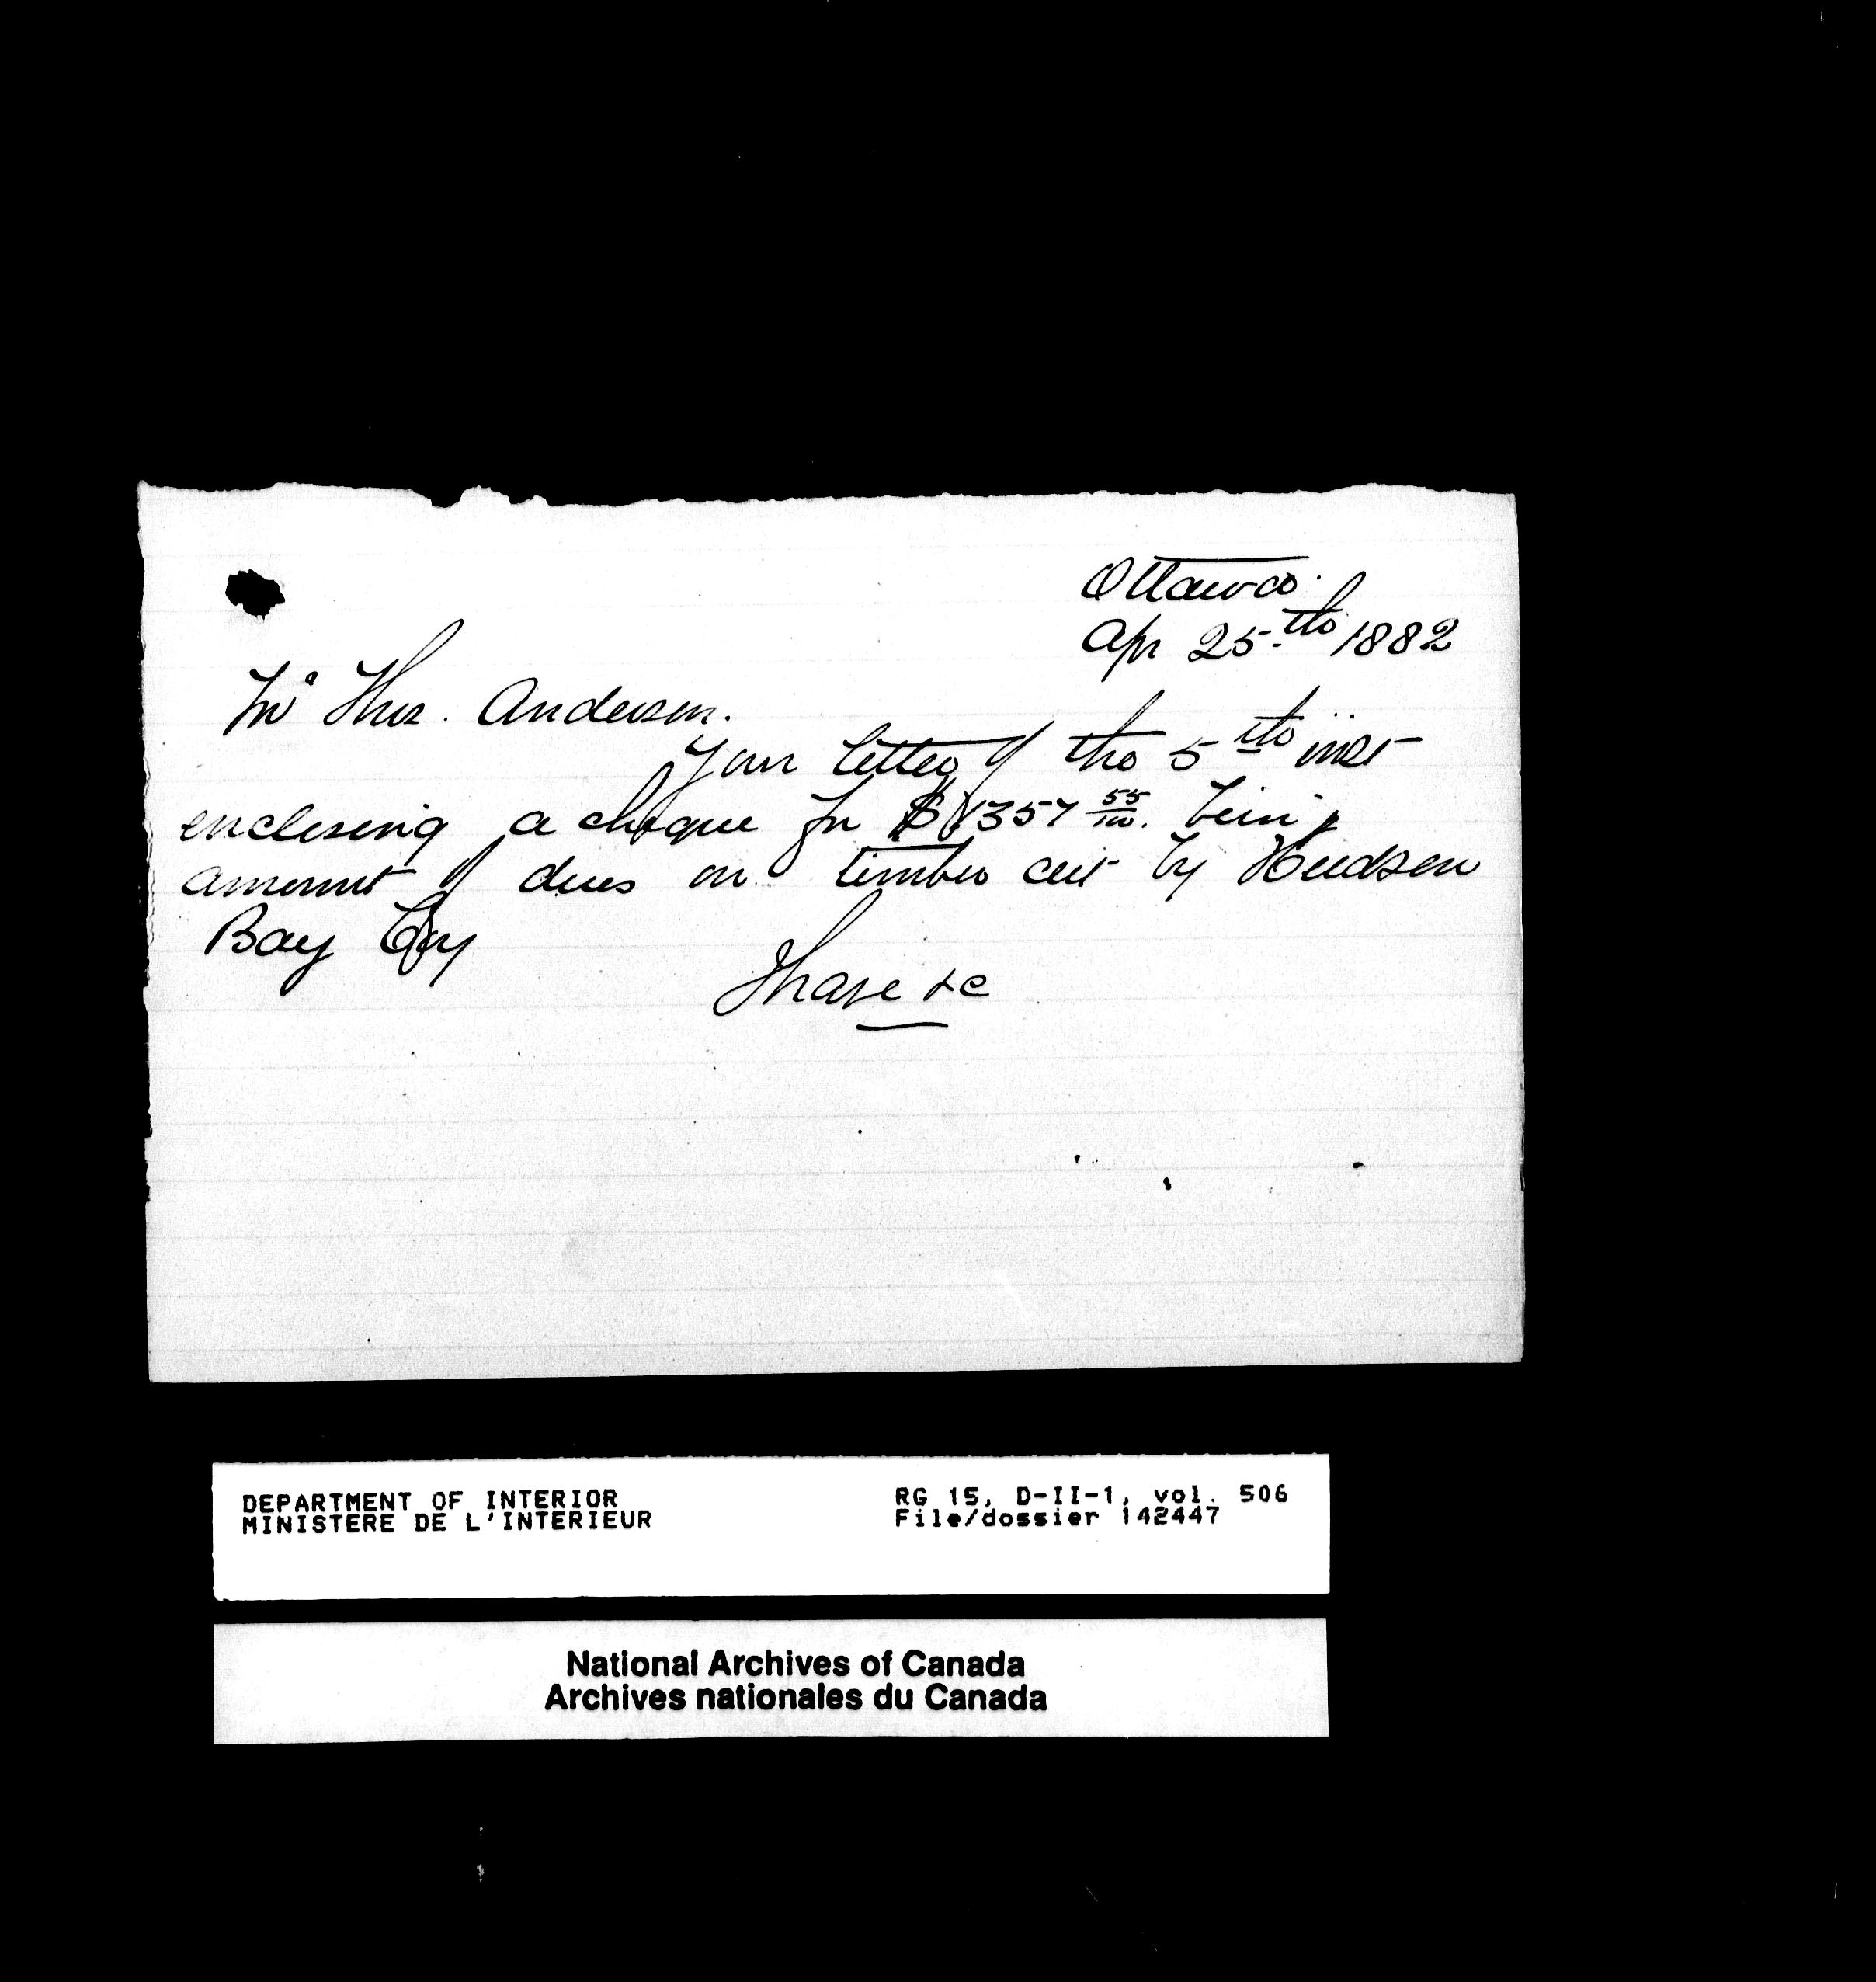 Ottawa.
Apr 25th 1882
Mr Thos. Anderson.
Your letter of the 5th inst
enclosing a cheque for $1357 55/100. being
amount of dues on timber cut by Hudson
Bay Coy
I have &c
DEPARTMENT OF INTERIOR
MINISTERE DE L'INTERIEUR
RG 15, D-II-1, vol. 506
File/dossier 142447
National Archives of Canada
Archives nationales du Canada